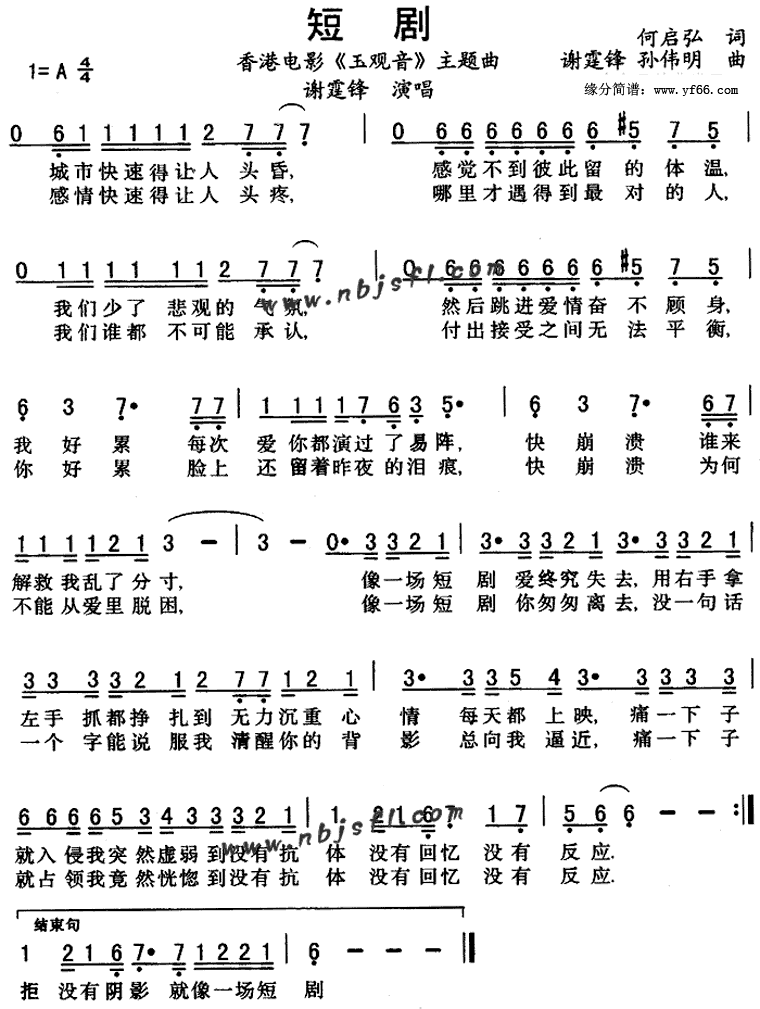 短 剧
何启弘 词
1=A 4/4
香港电影《玉观音》主题曲
谢霆锋 孙伟明 曲
谢霆锋 演唱
缘分简谱：www.yf66.com
0 61 1111 112 77 7 | 0 66 6666 6#5 7 5
城市快速得让人 头昏, 感觉不到彼此留 的 体 温,
感情快速得让人 头疼, 哪里才遇得到最 对 的 人,
0 11 111 11 2 77 7 | 0 66 6666 6#5 7 5
我们少了 悲观的 气氛, 然后跳进爱情奋 不 顾 身,
我们谁都 不可能 承认, 付出接受之间无 法 平 衡,
www.nbjsfl.com
6 3 7• 77 | 1 11 1766 3 5• | 6 3 7• 67
我 好 累 每次 爱 你都演过了易阵, 快 崩 溃 谁来
你 好 累 脸上 还 留着昨夜的泪痕, 快 崩 溃 为何
111 121 3 – | 3 – 0•3 3321 | 3•3 3321 3•3 3323
解救我乱了 分寸, 像一场短 剧 爱终究失去, 用右手拿
不能从爱里 脱困, 像一场短 剧 你匆匆离去, 没一句话
33 3 3212 77 1121 | 3• 3354 3•3 333
左手 抓都挣 扎到 无力沉重 心 情 每天都 上映, 痛一下子
一个 字能说 服我 清醒你的 背 影 总向我 逼近, 痛一下子
666 6653 4333 3321 | 1 2167 17 | 56 6 – – :||
就入 侵我突然虚弱 到没有抗 体 没有回忆 没有 反应.
就占 领我竟然恍惚 到没有抗 体 没有回忆 没有 反应.
www.nbjsfl.com
结束句
1 2167•7 1221 | 6 – – – ||
拒 没有阴影 就像一场短 剧